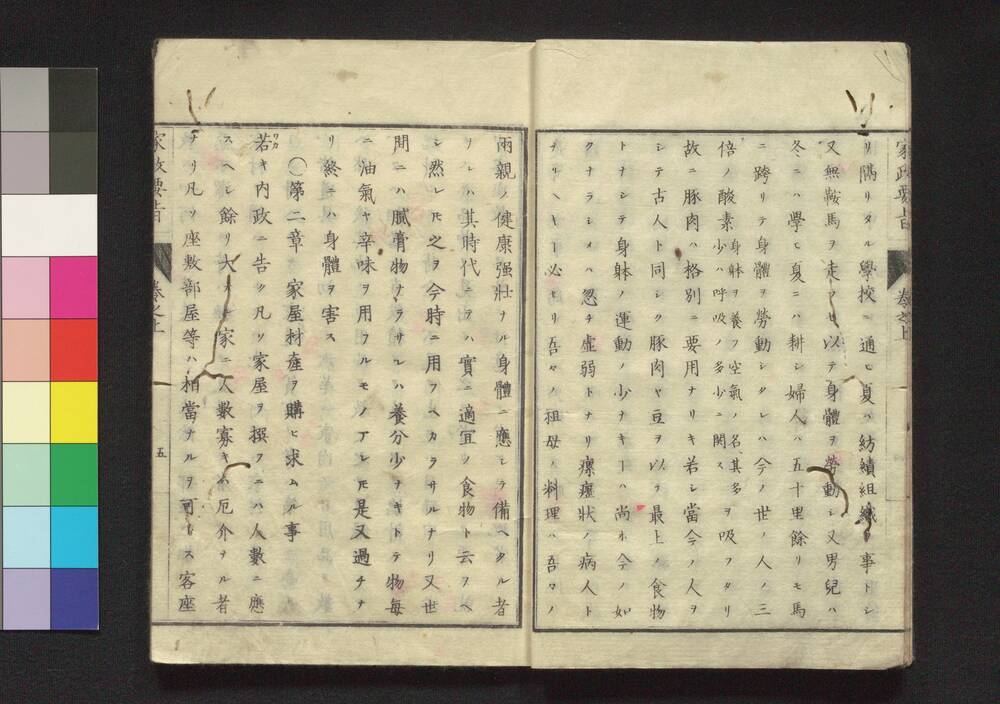 リ隔リタル學校ニ通ヒ夏ハ紡績組織ノ事トシ
又無鞍馬ヲ走ラセ以テ身體ヲ勞動シ又男兒ハ
冬ニハ學ヒ夏ニハ耕シ婦人ハ五十里餘リモ馬
ニ跨リテ身體ヲ勞動シタレハ今ノ世ノ人ノ三
倍ノ酸素身躰ヲ養フ空氣ノ名其多少ハ呼吸ノ多少ニ関スヲ吸フタリ
故ニ豚肉ハ格別ニ要用ナリキ若シ當今ノ人ヲ
シテ古人ト同シク豚肉ヤ豆ヲ以テ最上ノ食物
トナシテ身躰ノ運動ノ少ナキヿハ尚ホ今ノ如
クナラシメハ忽チ虚弱トナリ瘰癧状ノ病人ト
ナリヘキヿ必セリ吾々ノ祖母ノ料理ハ吾々ノ
家政要旨 巻之上
兩親ノ健康强壮ナル身體ニ應シテ備ヘタル者
ソレハ其時代ニテハ實ニ適宜ノ食物ト云フヘ
シ然レ𪜈之ヲ今時ニ用フヘカラサルナリ又世
間ニハ膩膏物ナラサレハ養分少ヲキトテ物毎
ニ油氣ヤ辛味ヲ用フルモノアレ𪜈是又過チナ
リ終ニハ身體ヲ害ス
○第二章 家屋材産ヲ購ヒ求ムル事
若キ内政ニ告ク凡ソ家屋ヲ撰フニハ人數ニ應
スヘシ餘リ大ナル家ニ人數寡キハ厄介ナル者
ナリ凡ソ座敷部屋等ハ相當ナルヲ可トス客座
家政要旨 巻之上 五